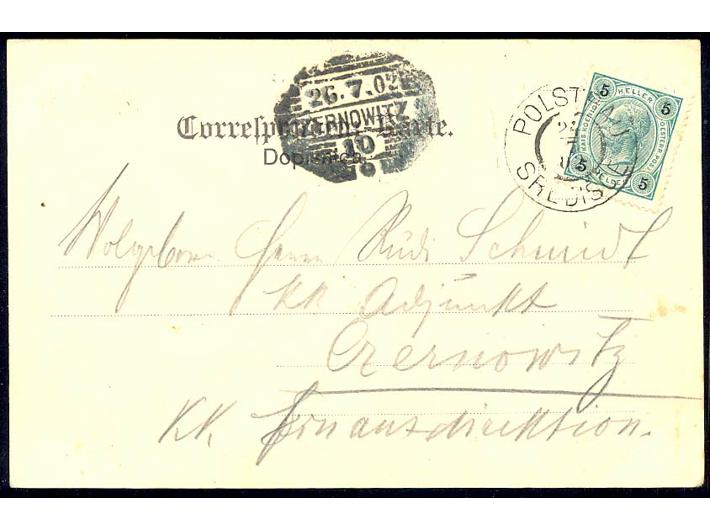 26.7.02
CZERNOWITZ
10
Correspondenz-Karte.
Dopisnica.
POLST
SREDIS
5 HELLER 5
5 5
Wolgeborn Herrn Rudi Schmidt
KK Adjunkt
Czernowitz
KK. Finanzdirektion.